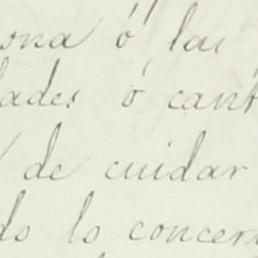 ona ó las
ades ó cant
de cuidar
do lo concern